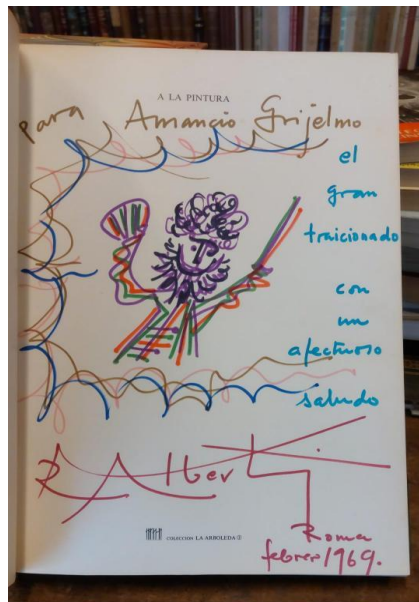 A LA PINTURA
para Amancio Grijelmo
el
gran
traicionado
con
un
afectuoso
saludo
R Alberti
COLECCION LA ARBOLEDA
Roma
febrero 1969.